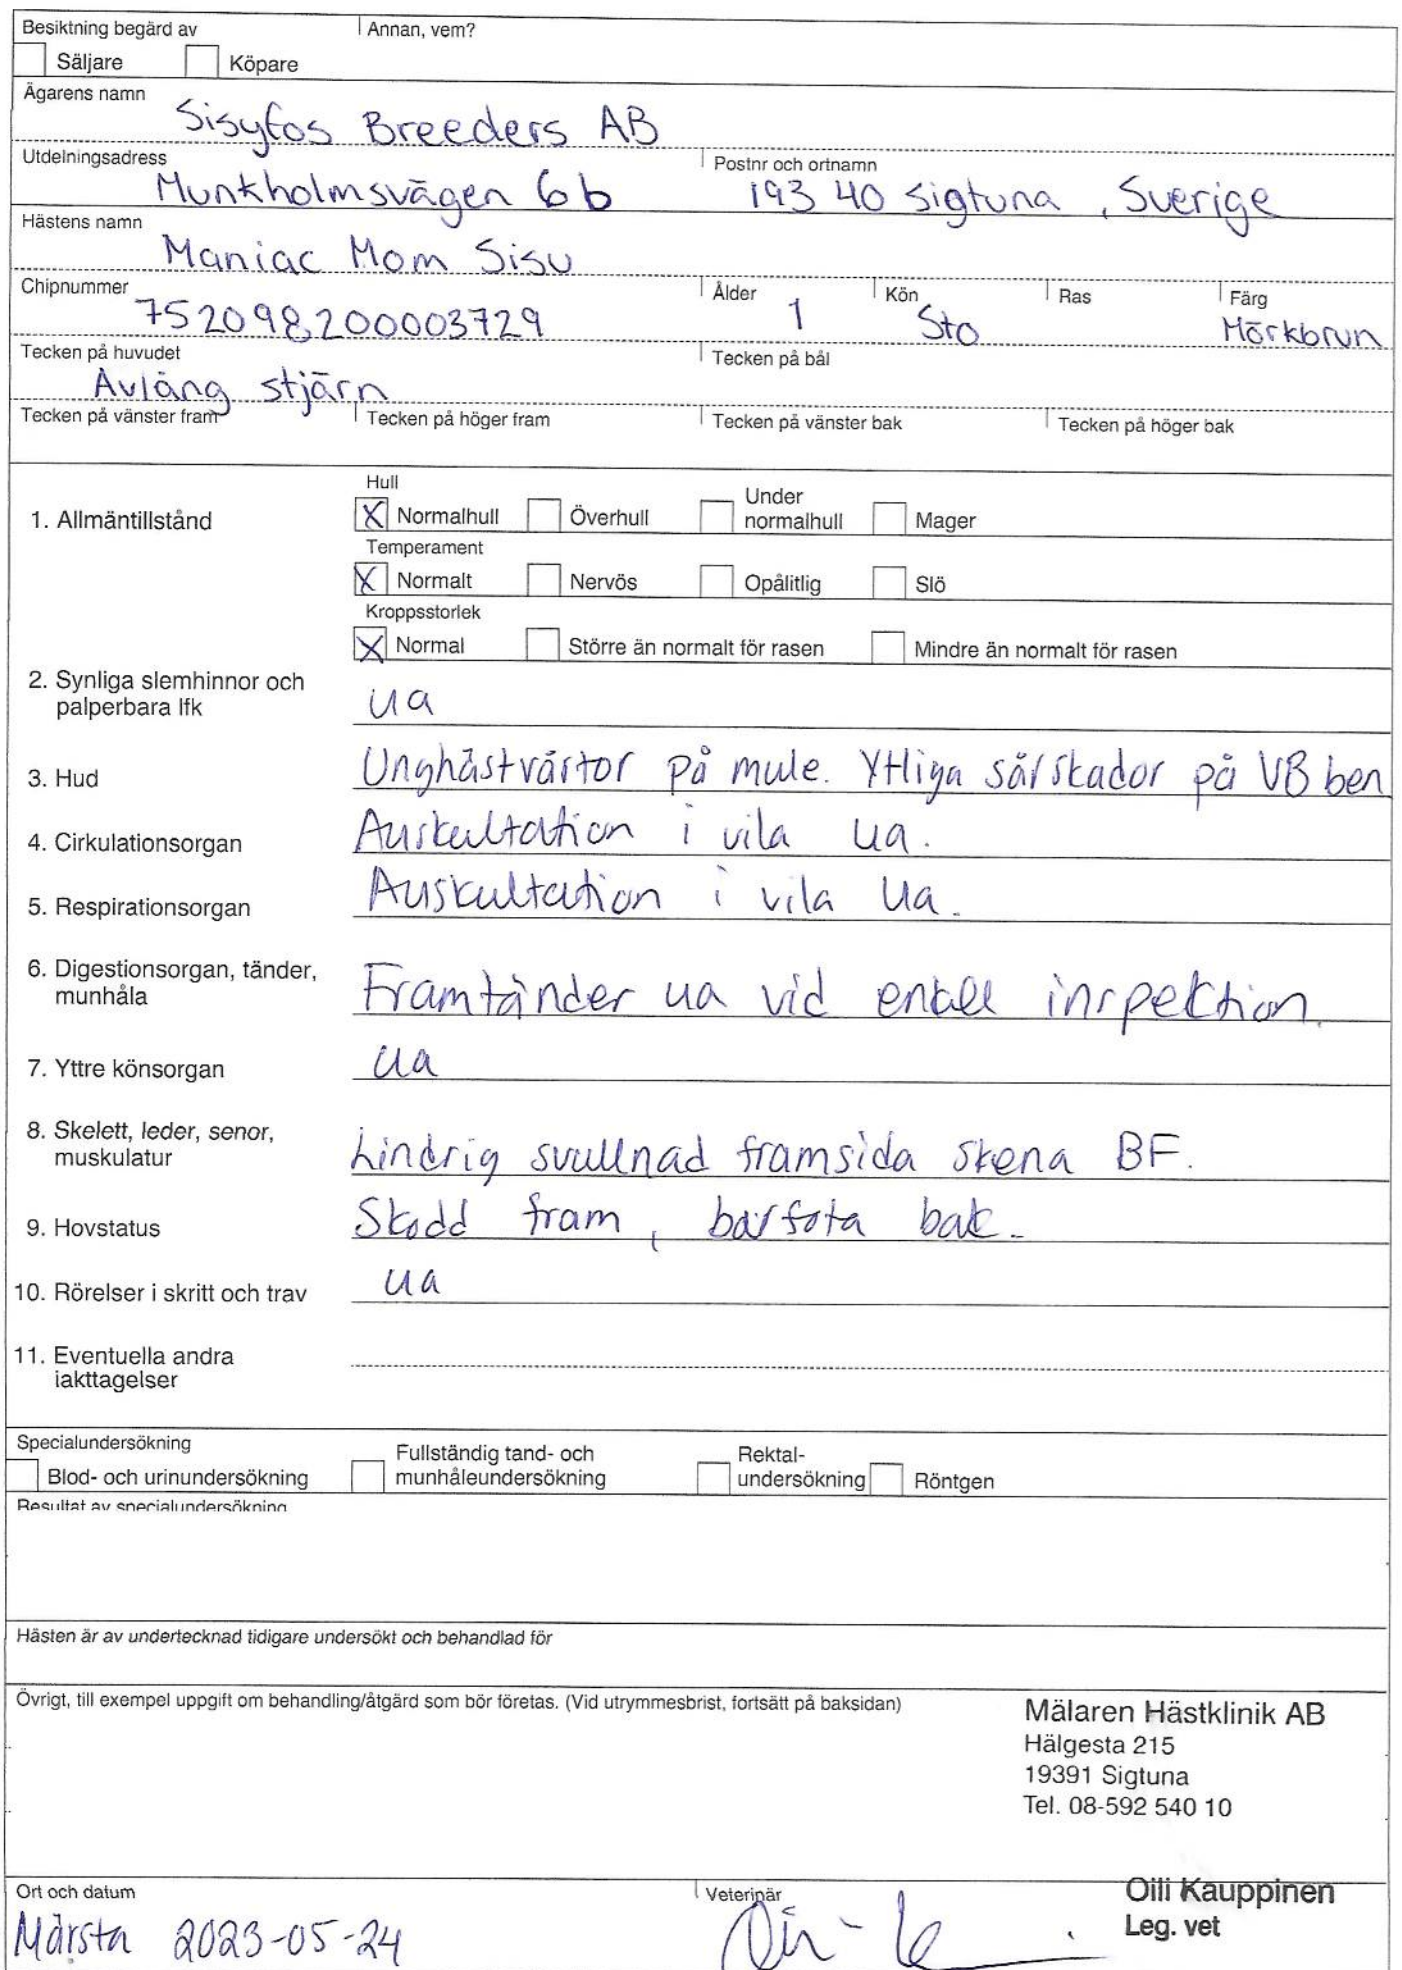 Besiktning begärd av Annan, vem?
Säljare Köpare
Ägarens namn
Sisyfos Breeders AB
Utdelningsadress Postnr och ortnamn
Munkholmsvägen 6b 193 40 Sigtuna, Sverige
Hästens namn
Maniac Mom Sisu
Chipnummer Ålder Kön Ras Färg
752098200003729 1 Sto Mörkbrun
Tecken på huvudet Tecken på bål
Avlång stjärn
Tecken på vänster fram Tecken på höger fram Tecken på vänster bak Tecken på höger bak
Hull
1. Allmäntillstånd X Normalhull Överhull Under normalhull Mager
Temperament
X Normalt Nervös Opålitlig Slö
Kroppsstorlek
X Normal Större än normalt för rasen Mindre än normalt för rasen
2. Synliga slemhinnor och
palperbara lfk ua
3. Hud Unghästvårtor på mule. Ytliga sårskador på VB ben
4. Cirkulationsorgan Auskultation i vila ua.
5. Respirationsorgan Auskultation i vila ua.
6. Digestionsorgan, tänder,
munhåla Framtänder ua vid enkel inspektion.
7. Yttre könsorgan ua
8. Skelett, leder, senor,
muskulatur Lindrig svullnad framsida skena BF.
9. Hovstatus Skodd fram, barfota bak.
10. Rörelser i skritt och trav ua
11. Eventuella andra
iakttagelser
Specialundersökning
Blod- och urinundersökning Fullständig tand- och munhåleundersökning Rektal-undersökning Röntgen
Resultat av specialundersökning
Hästen är av undertecknad tidigare undersökt och behandlad för
Övrigt, till exempel uppgift om behandling/åtgärd som bör företas. (Vid utrymmesbrist, fortsätt på baksidan)
Mälaren Hästklinik AB
Hälgesta 215
19391 Sigtuna
Tel. 08-592 540 10
Ort och datum Veterinär Oili Kauppinen
Märsta 2023-05-24 Leg. vet